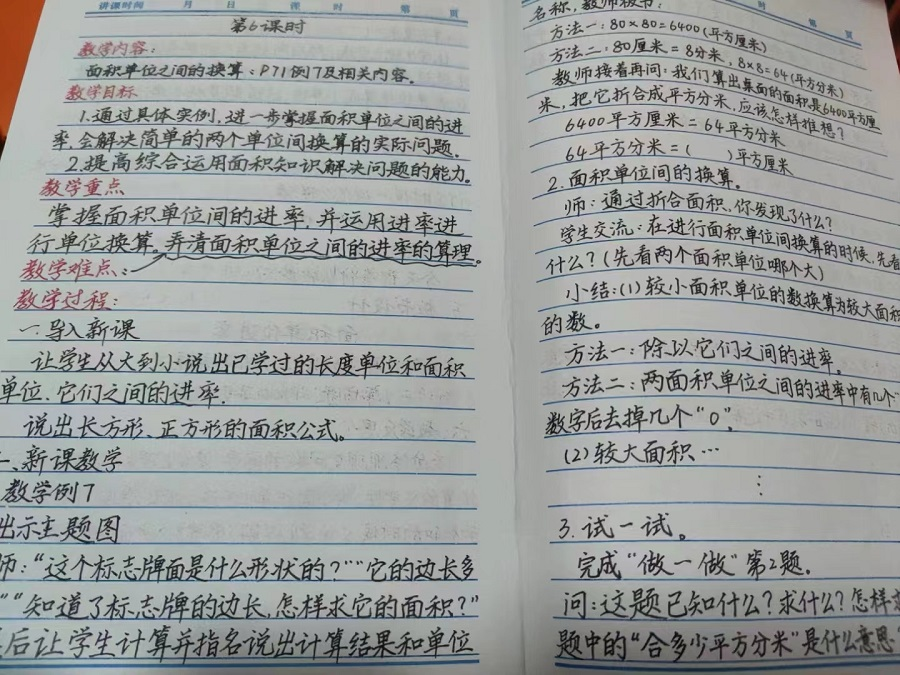 讲课时间 月 日 课 时 第 页
第6课时
教学内容：
面积单位之间的换算：P71例7及相关内容。
教学目标
1.通过具体实例，进一步掌握面积单位之间的进
率，会解决简单的两个单位间换算的实际问题。
2.提高综合运用面积知识解决问题的能力。
教学重点
掌握面积单位间的进率，并运用进率进
行单位换算。弄清面积单位之间的进率的算理。
教学难点：
教学过程：
一.导入新课
让学生从大到小说出已学过的长度单位和面积
单位.它们之间的进率.
说出长方形、正方形的面积公式。
、新课教学
教学例7
出示主题图
师：“这个标志牌面是什么形状的？”“它的边长多
”“知道了标志牌的边长，怎样求它的面积？”
后让学生计算并指名说出计算结果和单位
时 第 页
名称，教师板书：
方法一：80×80=6400(平方厘米)
方法二：80厘米=8分米，8×8=64(平方分米)
教师接着再问：我们算出桌面的面积是6400平方厘
米，把它折合成平方分米，应该怎样推想？
6400平方厘米=64平方分米
64平方分米=( )平方厘米
2.面积单位间的换算。
师：通过折合面积，你发现了什么？
学生交流：在进行面积单位间换算的时候，先看
什么？(先看两个面积单位哪个大)
小结：(1)较小面积单位的数换算为较大面积
的数。
方法一：除以它们之间的进率。
方法二：两面积单位之间的进率中有几个“
数字后去掉几个“0”。
(2)较大面积…
⋮
3.试一试。
完成“做一做”第2题。
问：这题已知什么？求什么？怎样求
题中的“合多少平方分米”是什么意思